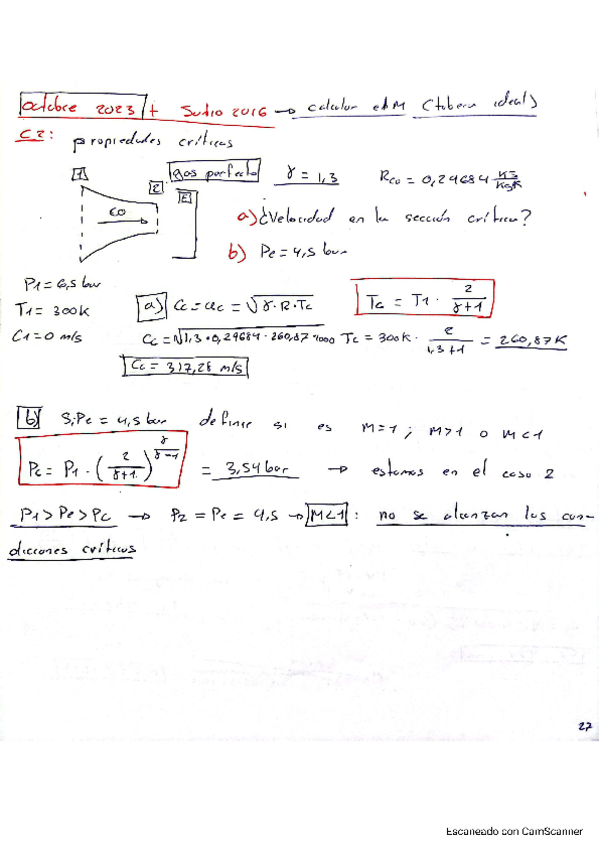 octubre 2023 + Junio 2016 → calcular el M (tobera ideal)
C2: propiedades críticas
1 gas perfecto γ = 1,3 R_CO = 0,29684 KJ/KgK
2 E
CO
a) ¿Velocidad en la sección crítica?
b) Pe = 4,5 bar
P1 = 6,5 bar
T1 = 300K
C1 = 0 m/s
a) Cc = ac = √γ·R·Tc Tc = T1 · 2/γ+1
Cc = √1,3·0,29684·260,87·1000 Tc = 300K · 2/1,3+1 = 260,87K
Cc = 317,28 m/s
b) Si Pe = 4,5 bar definir si es M=1 ; M>1 o M<1
Pc = P1 · (2/γ+1)^γ/γ-1 = 3,54 bar → estamos en el caso 2
P1 > Pe > Pc → P2 = Pe = 4,5 → M<1 : no se alcanzan las con-
diciones críticas
27
Escaneado con CamScanner